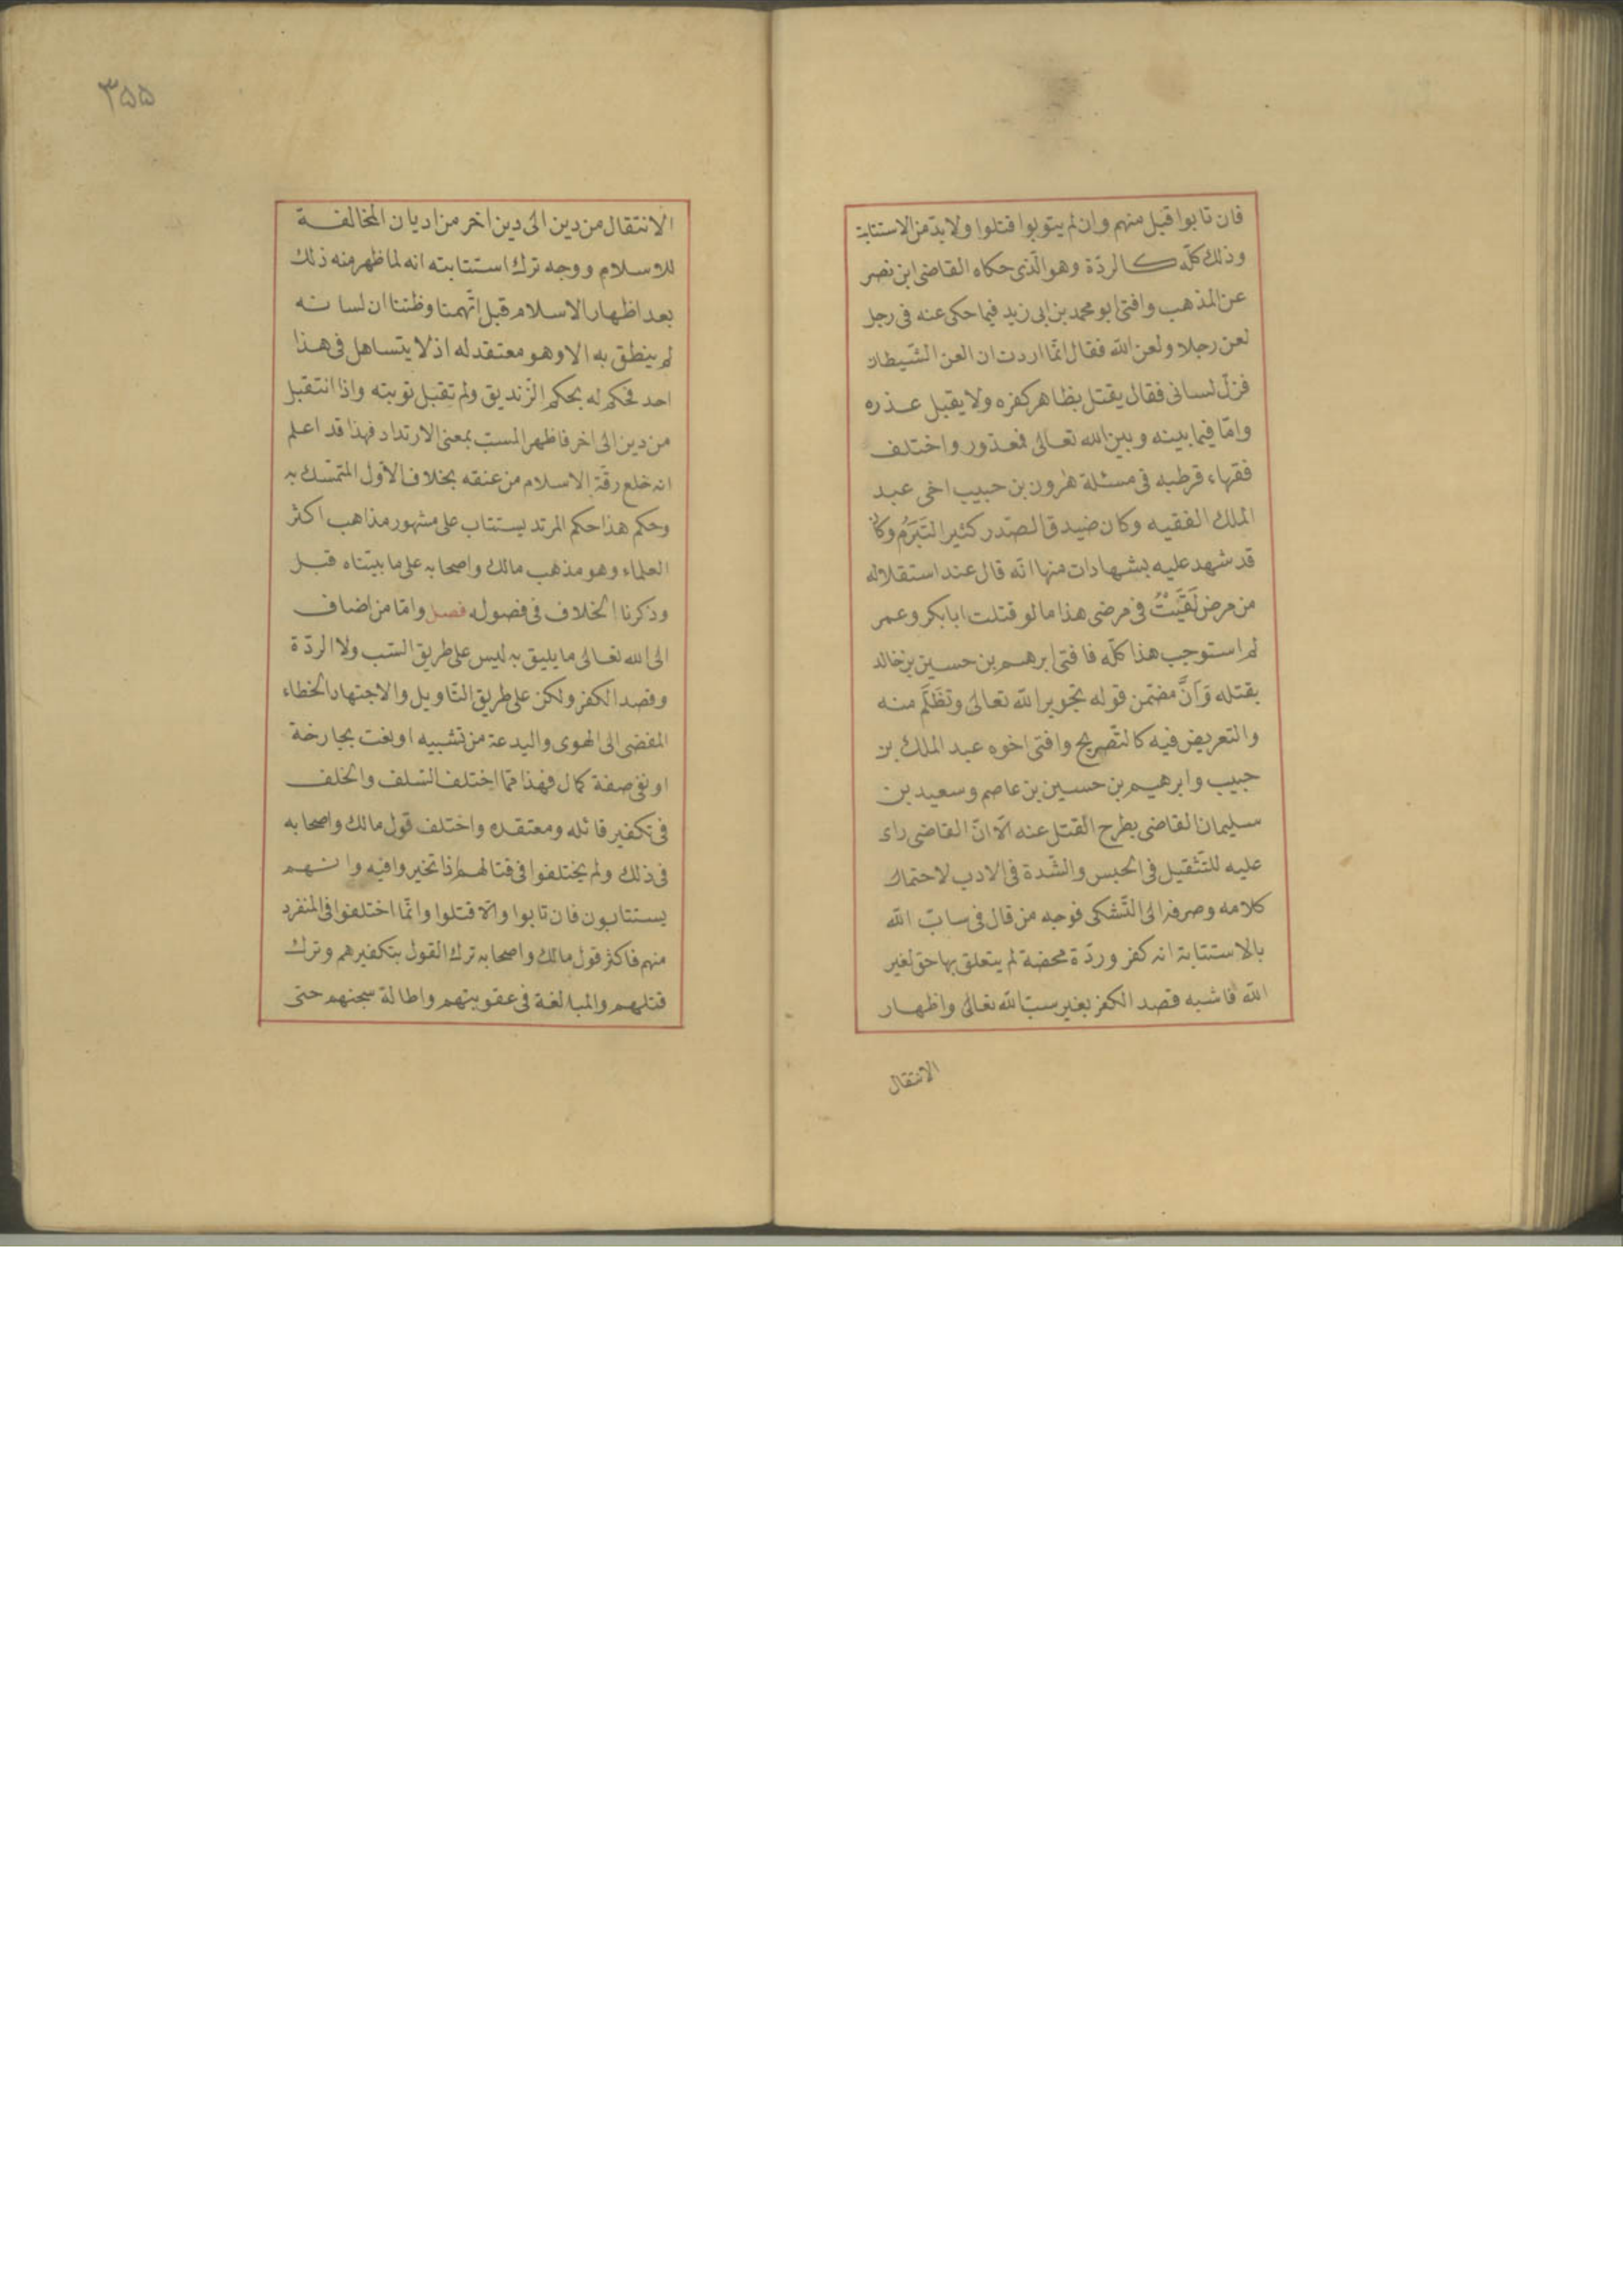 فان تابوا قبل منهم وان لم يتوبوا قتلوا ولا بدّ من الاستتابة
وذلك كلّه كالردّة وهو الّذى حكاه القاضى ابن نصر
عن المذهب وافتى ابو محمد بن ابى زيد فيما حكى عنه فى رجل
لعن رجلا ولعن الله فقال انّما اردت ان العن الشّيطان
فزلّ لسانى فقال يقتل بظاهر كفره ولا يقبل عذره
وامّا فيما بينه وبين الله تعالى فمعذور واختلف
فقهاء قرطبه فى مسئلة هٰرون بن حبيب اخى عبد
الملك الفقيه وكان ضيد قالصّدر كثير التّبرّم وكان
قد شهد عليه بشهادات منها انّه قال عند استقلاله
من مرض لَقَيْتُ فى مرضى هذا ما لو قتلت ابا بكر وعمر
لم استوجب هذا كلّه فافتى ابرهيم بن حسين بن خالد
بقتله وَاَنَّ مضمّن قوله تجوير الله تعالى وتظَلّم منه
والتعريض فيه كالتّصريح وافتى اخوه عبد الملك بن
حبيب وابرهيم بن حسين بن عاصم وسعيد بن
سليمان القاضى بطرح القتل عنه الّا انّ القاضى راى
عليه للتّثقيل فى الحبس والشّدة فى الادب لاحتمال
كلامه وصرفه الى التّشكى فوجه من قال فى سابّ الله
بالاستتابة انه كفر وردّة محضة لم يتعلق بها حق لغير
الله فاشبه قصد الكفر بغير سبّ الله تعالى واظهار
الانتقال
٣٥٥
الانتقال من دين الى دين اخر من اديان المخالفة
للاسلام ووجه ترك استتابته انه لما ظهر منه ذلك
بعد اظهار الاسلام قبل اتّهمنا وظننا ان لسانه
لم ينطق به الا وهو معتقد له اذ لا يتساهل فى هذا
احد فحكم له بحكم الزّنديق ولم تقبل توبته واذا انتقل
من دين الى اخر فاظهر المسبّ بمعنى الارتداد فهذا قد اعلم
انه خلع رقّة الاسلام من عنقه بخلاف الاوّل المتمسّك به
وحكم هذا حكم المرتد يستتاب على مشهور مذاهب اكثر
العلماء وهو مذهب مالك واصحابه على ما بيّناه قبل
وذكرنا الخلاف فى فصوله فصل وامّا من اضاف
الى الله تعالى ما يليق به ليس على طريق السّب ولا الردّة
وقصد الكفر ولكن على طريق التّاويل والاجتهاد الخطاء
المفضى الى الهوى والبدعة من تشبيه او نعت بجارخة
او نفى صفة كمال فهذا ممّا اختلف السّلف والخلف
فى تكفير قائله ومعتقده واختلف قول مالك واصحابه
فى ذلك ولم يختلفوا فى قتالهم اذا تخيروا فيه وانهم
يستتابون فان تابوا والّا قتلوا وانّما اختلفوا فى المنفرد
منهم فاكثر قول مالك واصحابه ترك القول بتكفيرهم وترك
قتلهم والمبالغة فى عقوبتهم واطالة سجنهم حتى